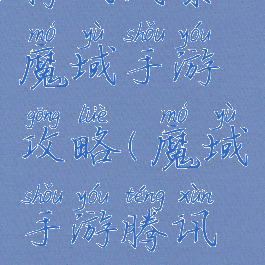 mó yù shǒu yóu
魔域手游
gōng lüè mó yù
攻略(魔域
shǒu yóu téng xùn
手游腾讯